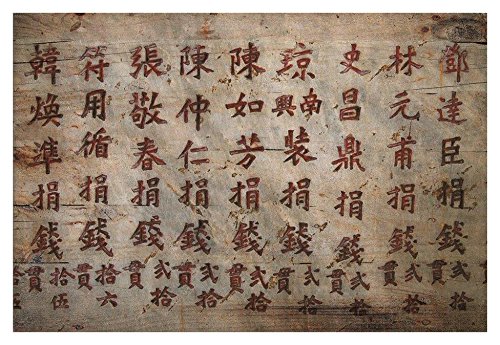 鄧達臣捐錢貳拾貫
林元甫捐錢貳拾貫
史昌鼎捐錢貳拾貫
琼南興裝捐錢貳拾貫
陳如芳捐錢貳拾貫
陳仲仁捐錢貳拾貫
張敬春捐錢貳拾貫
符用循捐錢拾六貫
韓煥準捐錢拾伍貫